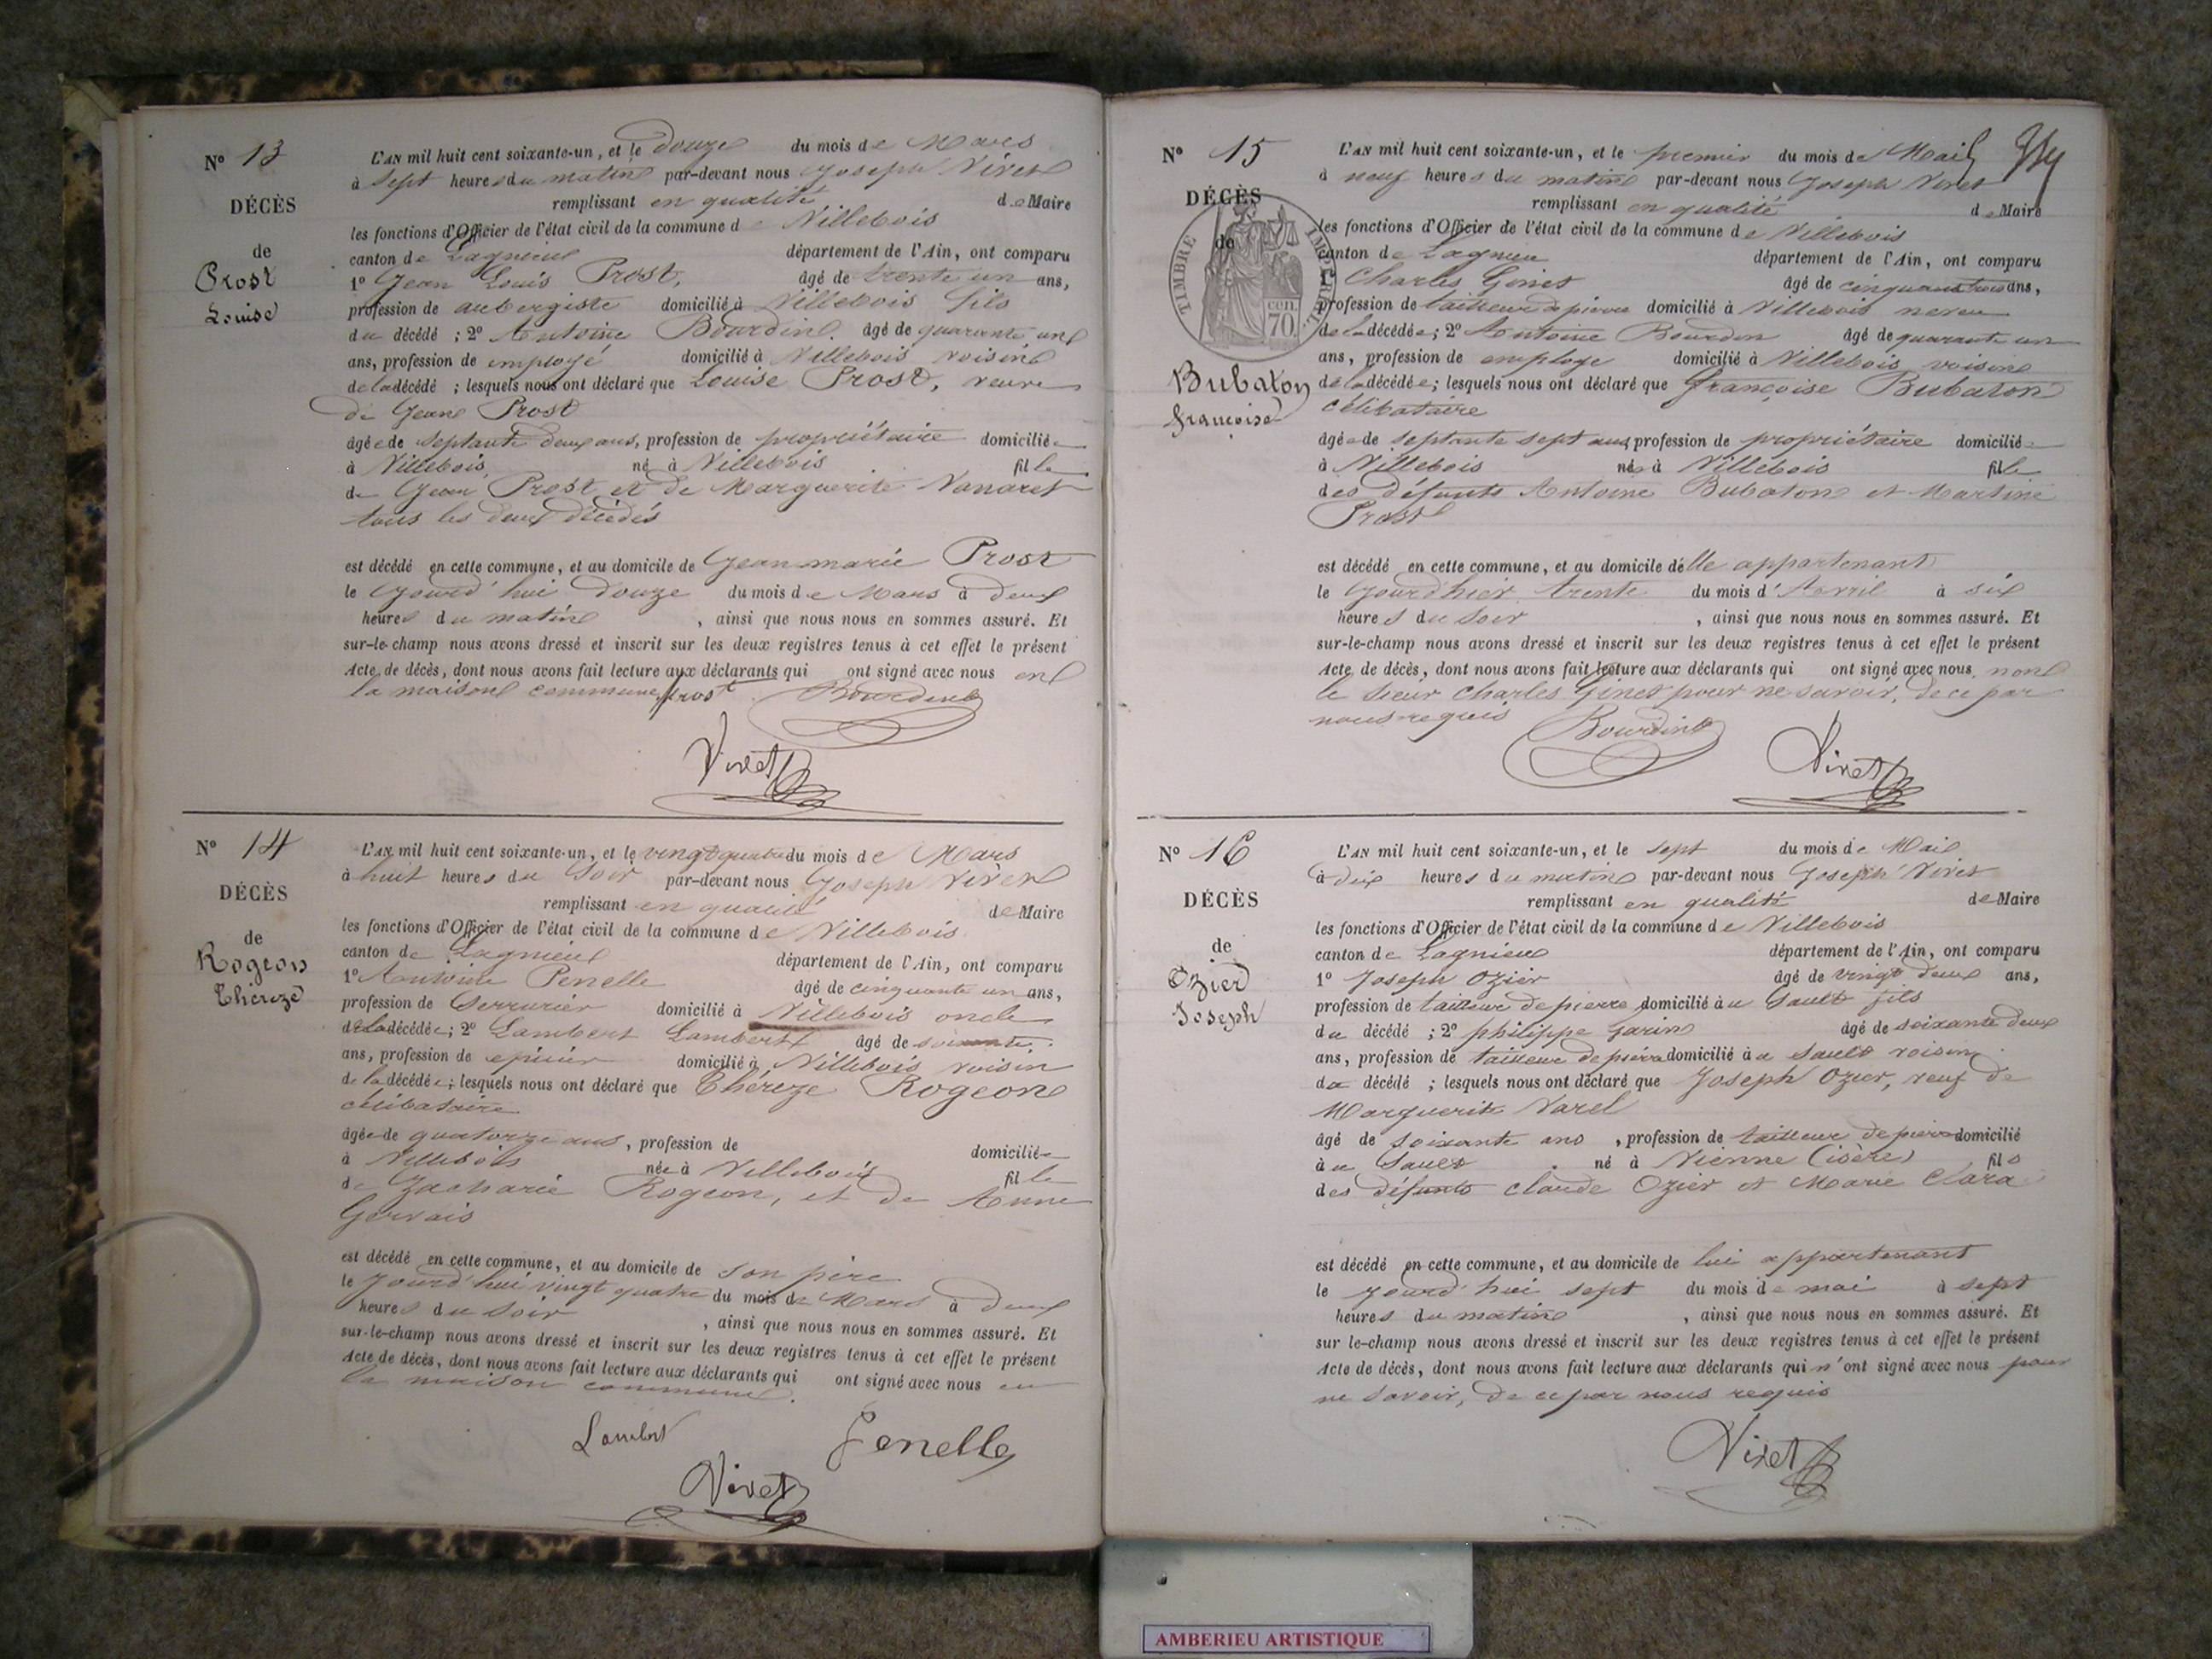 N° 13
DÉCÈS
de
Prost
Louise
L'AN mil huit cent soixante-un, et le douze du mois de Mars
à sept heures du matin par-devant nous Joseph Vivet
remplissant en qualité de Maire
les fonctions d'Officier de l'état civil de la commune de Villebois
canton de Lagnieu département de l'Ain, ont comparu
1° Jean Louis Prost, âgé de trente un ans,
profession de aubergiste domicilié à Villebois fils
du décédé ; 2° Antoine Bourdin. âgé de quarante un
ans, profession de employé domicilié à Villebois voisin
de la décédé ; lesquels nous ont déclaré que Louise Prost, veuve
de Jean Prost
âgée de septante deux ans, profession de propriétaire domiciliée
à Villebois, né à Villebois fille
de Jean Prost et de Marguerite Vanaret
tous les deux décédés
est décédé en cette commune, et au domicile de Jean marie Prost
le jourd'hui douze du mois de Mars à deux
heures du matin , ainsi que nous nous en sommes assuré. Et
sur-le-champ nous avons dressé et inscrit sur les deux registres tenus à cet effet le présent
Acte de décès, dont nous avons fait lecture aux déclarants qui ont signé avec nous en
la maison commune Prost Bourdin
Vivet
N° 14
DÉCÈS
de
Rogeon
Théreze
L'AN mil huit cent soixante-un, et le vingt quatre du mois de Mars
à huit heures du Soir par-devant nous Joseph Vivet
remplissant en qualité de Maire
les fonctions d'Officier de l'état civil de la commune de Villebois
canton de Lagnieu département de l'Ain, ont comparu
1° Antoine Penelle âgé de cinquante un ans,
profession de Serrurier domicilié à Villebois oncle
de la décédée ; 2° Lambert Lambert âgé de soixante
ans, profession de epicier domicilié à Villebois voisin
de la décédée ; lesquels nous ont déclaré que Théreze Rogeon
célibataire
âgée de quatorze ans, profession de domiciliée
à Villebois née à Villebois fille
de Zacharie Rogeon, et de Anne
Gervais
est décédé en cette commune, et au domicile de son père
le jourd'hui vingt quatre du mois de Mars à deux
heures du soir , ainsi que nous nous en sommes assuré. Et
sur-le-champ nous avons dressé et inscrit sur les deux registres tenus à cet effet le présent
Acte de décès, dont nous avons fait lecture aux déclarants qui ont signé avec nous en
la maison commune.
Lambert Penelle
Vivet
N° 15
DÉCÈS
de
TIMBRE IMPÉRIAL
70 cen.
Bubaton
françoise
L'AN mil huit cent soixante-un, et le premier du mois de Mai
à neuf heures du matin par-devant nous Joseph Vivet
remplissant en qualité de Maire
les fonctions d'Officier de l'état civil de la commune de Villebois
canton de Lagnieu département de l'Ain, ont comparu
1° Charles Ginet âgé de cinquante trois ans,
profession de tailleur de pierre domicilié à Villebois neveu
de la décédée ; 2° Antoine Bourdin âgé de quarante un
ans, profession de employe domicilié à Villebois voisin
de la décédée ; lesquels nous ont déclaré que françoise Bubaton
célibataire
âgée de septante sept ans, profession de propriétaire domiciliée
à Villebois née à Villebois fille
des défunts Antoine Bubaton et Martine
Prost
est décédé en cette commune, et au domicile d'elle appartenant
le jourd'hier trente du mois d'Avril à six
heures du soir , ainsi que nous nous en sommes assuré. Et
sur-le-champ nous avons dressé et inscrit sur les deux registres tenus à cet effet le présent
Acte de décès, dont nous avons fait lecture aux déclarants qui ont signé avec nous, non
le sieur Charles Ginet pour ne savoir, de ce par
nous requis Bourdin
Vivet
N° 16
DÉCÈS
de
Ozier
Joseph
L'AN mil huit cent soixante-un, et le sept du mois de Mai
à dix heures du matin par-devant nous Joseph Vivet
remplissant en qualité de Maire
les fonctions d'Officier de l'état civil de la commune de Villebois
canton de Lagnieu département de l'Ain, ont comparu
1° Joseph Ozier âgé de vingt deux ans,
profession de tailleur de pierre domicilié à u Sault fils
du décédé ; 2° philippe Garin âgé de soixante deux
ans, profession de tailleur de pierre domicilié à u Sault voisin
du décédé ; lesquels nous ont déclaré que Joseph Ozier, veuf de
Marguerite Varel
âgé de soixante ans, profession de tailleur de pierre domicilié
à u Sault né à Vienne (isère) fils
des défunts Claude Ozier et Marie Clara
est décédé en cette commune, et au domicile de lui appartenant
le jourd'hui sept du mois de mai à sept
heures du matin , ainsi que nous nous en sommes assuré. Et
sur le-champ nous avons dressé et inscrit sur les deux registres tenus à cet effet le présent
Acte de décès, dont nous avons fait lecture aux déclarants qui n'ont signé avec nous pour
ne savoir, de ce par nous requis
Vivet
AMBERIEU ARTISTIQUE